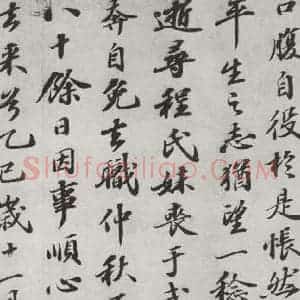 口腹自役於是悵然
平生之志猶望一稔
逝尋程氏妹喪于武
奔自免去職仲秋
八十餘日因事順心
去来兮乙巳歲十一月
Shufaziliao.com